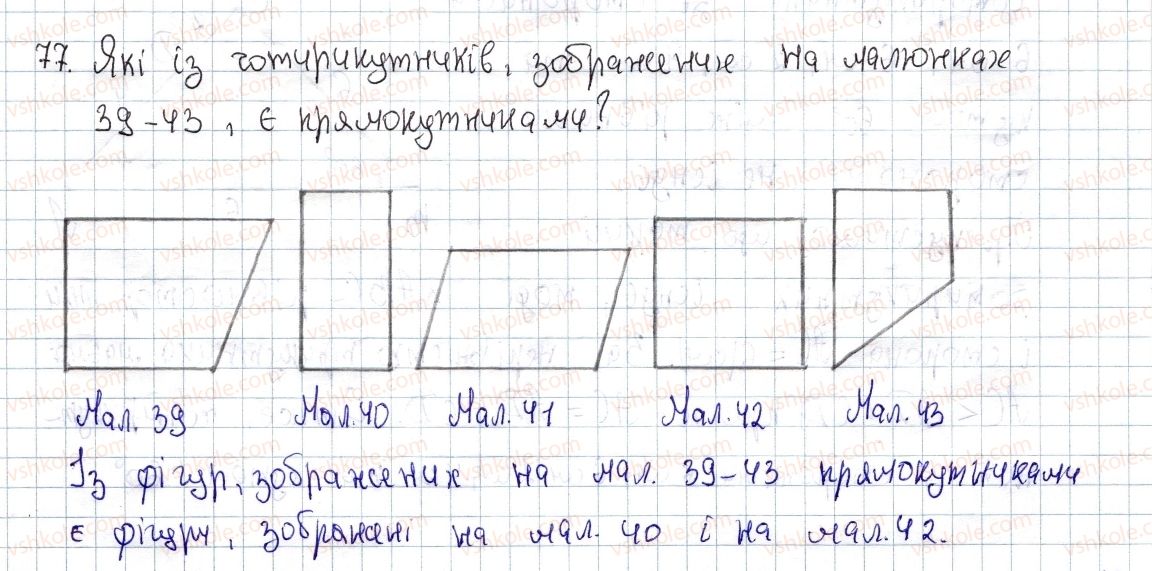 77. Які із чотирикутників, зображених на малюнках
39-43, є прямокутниками?
Мал. 39 Мал. 40 Мал. 41 Мал. 42 Мал. 43
Із фігур, зображених на мал. 39-43 прямокутниками
є фігури, зображені на мал. 40 і на мал. 42.
vshkole.com